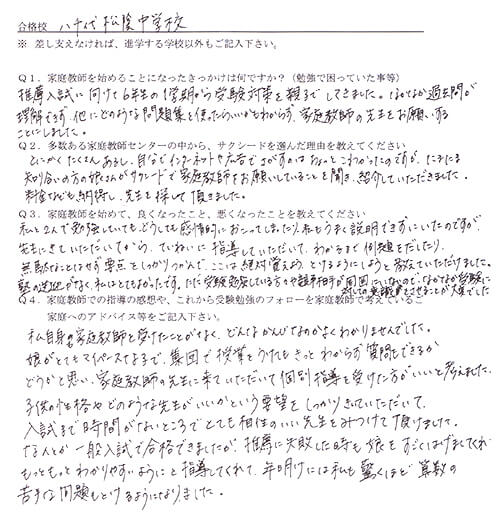 合格校 八千代松陰中学校
※ 差し支えなければ、進学する学校以外もご記入下さい。
Q1．家庭教師を始めることになったきっかけは何ですか？（勉強で困っていた事等）
推薦入試に向けて6年生の1学期から受験対策を親子でしてきました。なかなか過去問が
理解できず、他にどのような問題集を使ったらいいかもわからず、家庭教師の先生をお願いする
ことにしました。
Q2．多数ある家庭教師センターの中から、サクシードを選んだ理由を教えてください
とにかくたくさんあるし、自分でインターネットや広告でさがすのはちょっとこわかったのですが、たまたま
知り合いの方の娘さんがサクシードで家庭教師をお願いしていることを聞き、紹介していただきました。
料金なども納得し、先生を探して頂きました。
Q3．家庭教師を始めて、良くなったこと、悪くなったことを教えてください
私と2人で勉強していても、どうしても感情的におこってしまったり、私もうまく説明できずにいたのですが、
先生にきていただいてから、ていねいに指導していただいて、わかるまで例題をだしたり、
無駄なことはせず要点をしっかりつかんで、ここは絶対覚えよう、とけるようにしようと教えていただけました。
塾の送迎がなく、私はとてもよかったです。ただ受験勉強している方々や競争相手が周囲にいないので、なかなか受験に
対しての意識をもたせることが大変でした
Q4．家庭教師での指導の感想や、これから受験勉強のフォローを家庭教師で考えているご
家庭へのアドバイス等をご記入下さい。
私自身も家庭教師を受けたことがなく、どんなかんじなのかよくわかりませんでした。
娘がとてもマイペースな子で、集団で授業をうけたらきっとわからず質問もできるか
どうかと思い、家庭教師の先生に来ていただいて個別指導を受けた方がいいと考えました。
子供の性格やどのような先生がいいかという要望をしっかりきいていただいて、
入試まで時間がないところでとても相性のいい先生をみつけて頂けました。
なんとか一般入試で合格できましたが、推薦に失敗した時も娘をすごくはげましてくれ
もっともっとわかりやすいようにと指導してくれて、年明けには私も驚くほど算数の
苦手な問題もとけるようになりました。